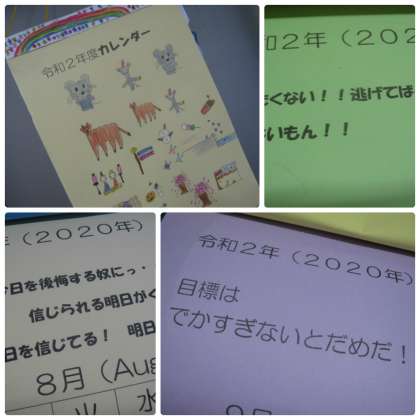 令和２年度カレンダー
和２年（２０２
くない！！逃げては
いもん！！
年（２０２０年）
今日を後悔する奴にっ・
信じられる明日がく
日を信じてる！　明日
８月（Aug
火　水
令和２年（２０２０年）
目標は
でかすぎないとだめだ！
９月